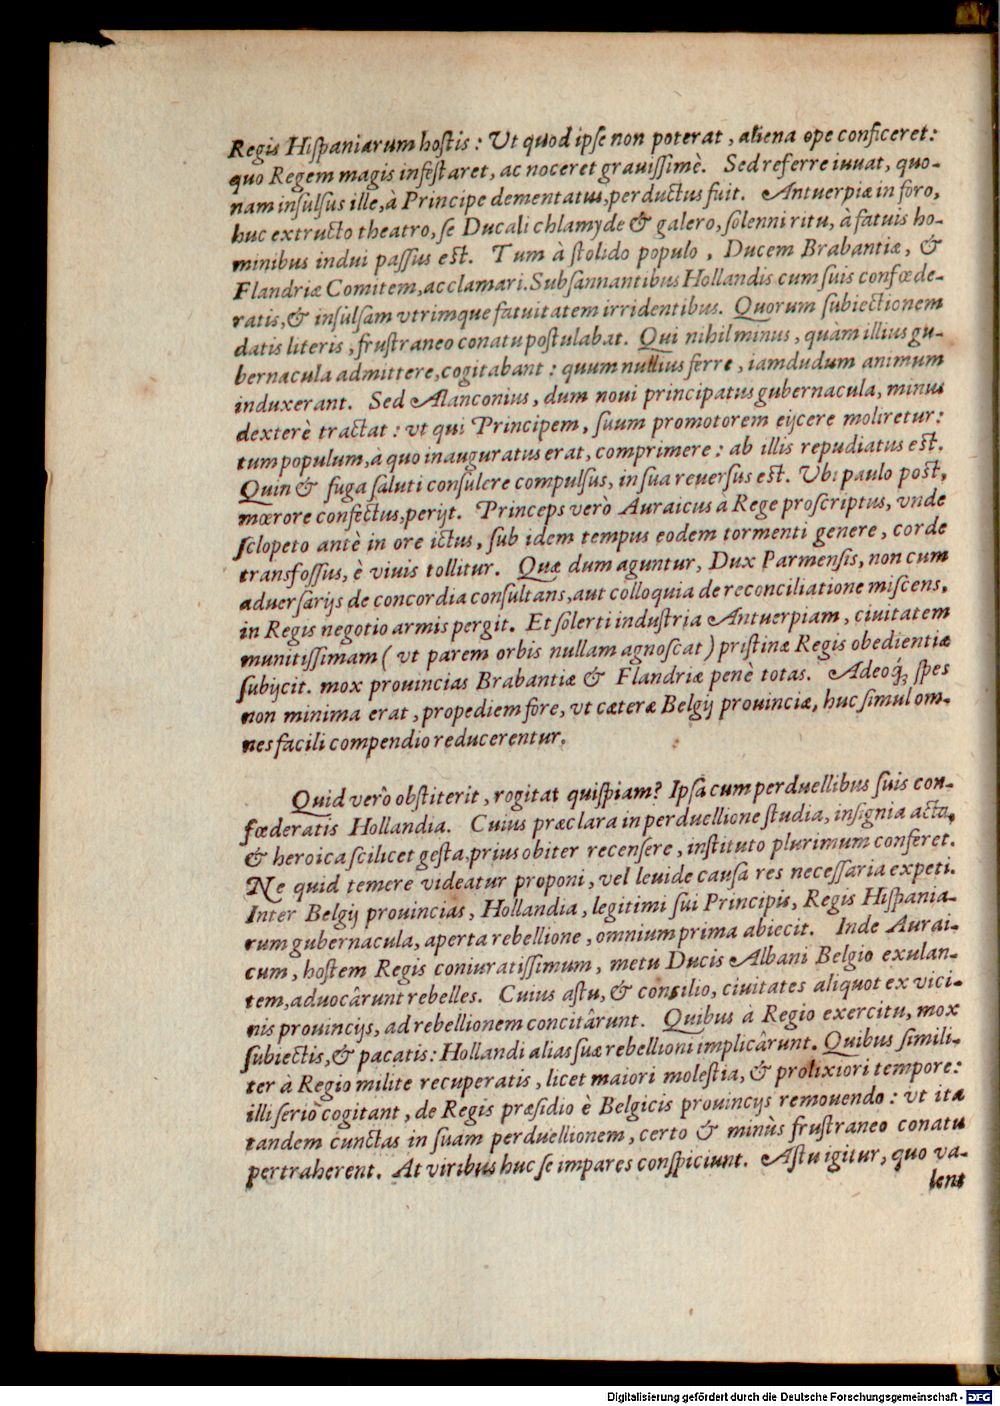 Regis Hiſpaniarum hoſtis: Ut quod ipſe non poterat, aliena ope conficeret:
quo Regem magis infeſtaret, ac noceret grauiſſimè. Sed referre iuuat, quo-
nam inſulſus ille, à Principe dementatus, perductus fuit. Antuerpiæ in foro,
huc extructo theatro, ſe Ducali chlamyde & galero, ſolenni ritu, à fatuis ho-
minibus indui paſſus eſt. Tum à ſtolido populo, Ducem Brabantiæ, &
Flandriæ Comitem, acclamari. Subſannantibus Hollandis cum ſuis confœde-
ratis, & inſulſam vtrimque fatuitatem irridentibus. Quorum ſubiectionem
datis literis, fruſtraneo conatu poſtulabat. Qui nihil minus, quàm illius gu-
bernacula admittere, cogitabant: quum nullius ferre, iamdudum animum
induxerant. Sed Alanconius, dum noui principatus gubernacula, minus
dexterè tractat: vt qui Principem, ſuum promotorem eijcere moliretur:
tum populum, à quo inauguratus erat, comprimere: ab illis repudiatus eſt.
Quin & fuga ſaluti conſulere compulſus, in ſua reuerſus eſt. Ubi paulo poſt,
mœrore confectus, perijt. Princeps verò Auraicus à Rege proſcriptus, vnde
ſclopeto antè in ore ictus, ſub idem tempus eodem tormenti genere, corde
transfoſſus, è viuis tollitur. Quæ dum aguntur, Dux Parmenſis, non cum
aduerſarijs de concordia conſultans, aut colloquia de reconciliatione miſcens,
in Regis negotio armis pergit. Et ſolerti induſtria Antuerpiam, ciuitatem
munitiſſimam (vt parem orbis nullam agnoſcat) priſtinæ Regis obedientiæ
ſubijcit. mox prouincias Brabantiæ & Flandriæ penè totas. Adeoq́; ſpes
non minima erat, propediem fore, vt cæteræ Belgij prouinciæ, huc ſimul om-
nes facili compendio reducerentur.
Quid verò obſtiterit, rogitat quiſpiam? Ipſa cum perduellibus ſuis con-
fœderatis Hollandia. Cuius præclara in perduellione ſtudia, inſignia acta,
& heroica ſcilicet geſta, prius obiter recenſere, inſtituto plurimum conferet.
Ne quid temere videatur proponi, vel leuide cauſa res neceſſaria expeti.
Inter Belgij prouincias, Hollandia, legitimi ſui Principis, Regis Hiſpania-
rum gubernacula, aperta rebellione, omnium prima abiecit. Inde Aurai-
cum, hoſtem Regis coniuratiſſimum, metu Ducis Albani Belgio exulan-
tem, aduocârunt rebelles. Cuius aſtu, & conſilio, ciuitates aliquot ex vici-
nis prouincijs, ad rebellionem concitârunt. Quibus à Regio exercitu, mox
ſubiectis, & pacatis: Hollandi alias ſuæ rebellioni implicârunt. Quibus ſimili-
ter à Regio milite recuperatis, licet maiori moleſtia, & prolixiori tempore:
illi ſeriò cogitant, de Regis præſidio è Belgicis prouincijs remouendo: vt ita
tandem cunctas in ſuam perduellionem, certo & minùs fruſtraneo conatu
pertraherent. At viribus huc ſe impares conſpiciunt. Aſtu igitur, quo va-
lent
Digitalisierung gefördert durch die Deutsche Forschungsgemeinschaft - DFG